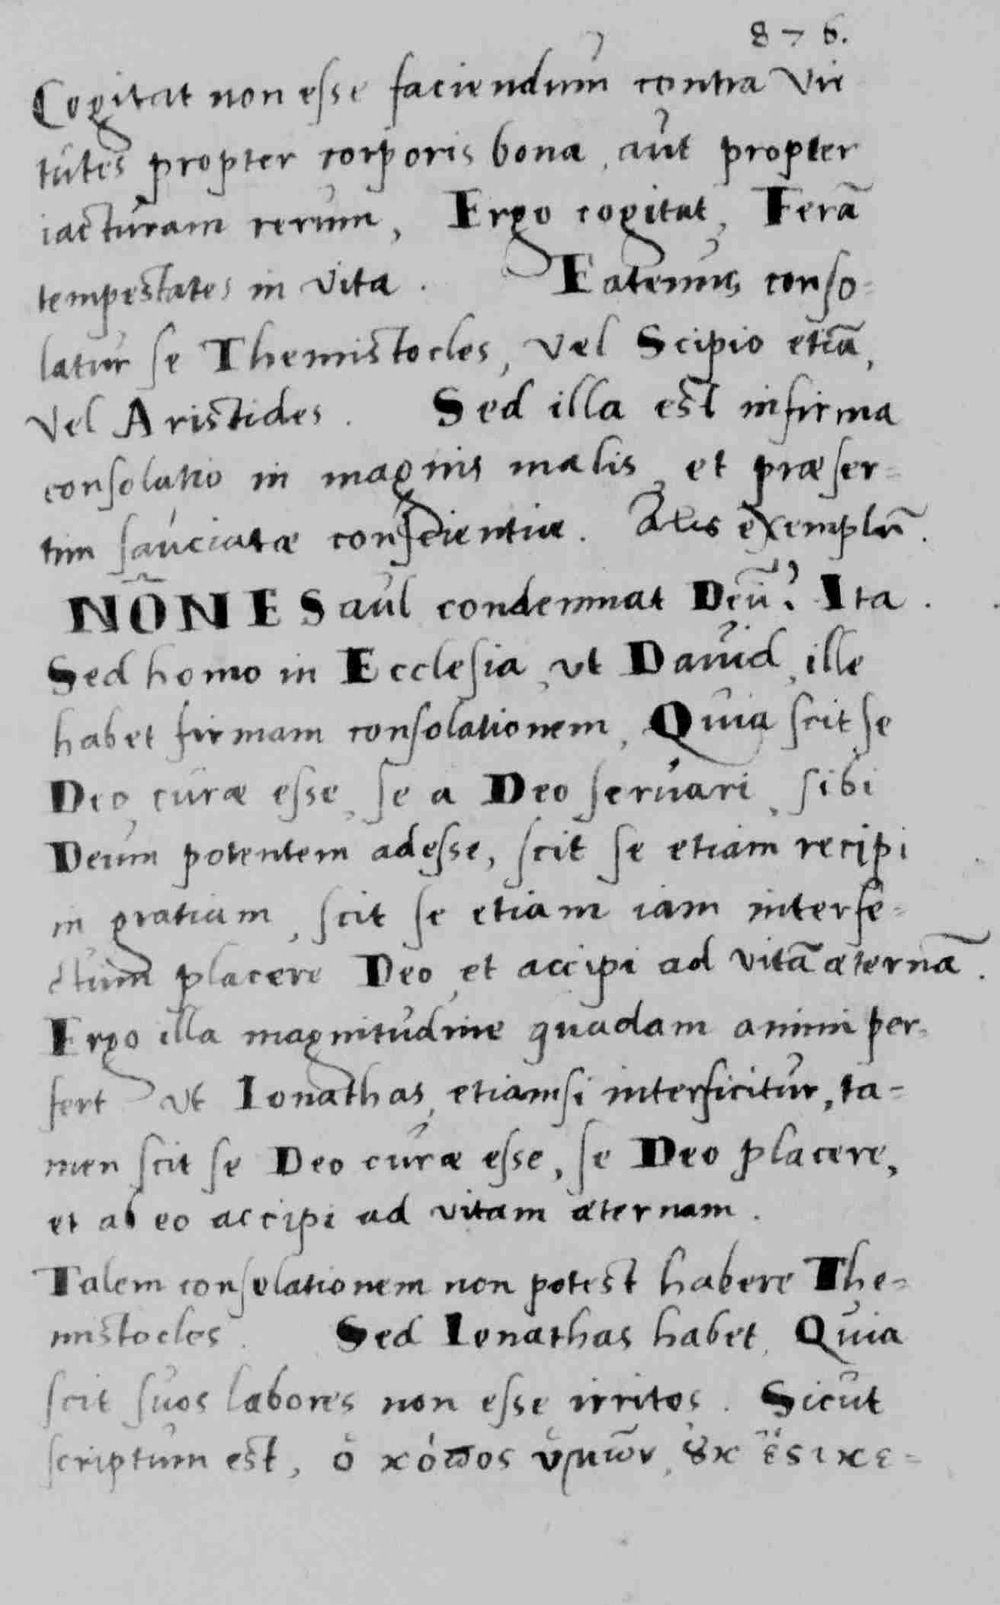 876.
Cogitat non esse faciendum contra Vir
tutes propter corporis bona, aut propter
iacturam rerum, Ergo cogitat, Ferā
tempestates in vita. Eatenus conso-
latur se Themistocles, vel Scipio etiā,
vel Aristides. Sed illa est infirma
consolatio in magnis malis, et præser-
tim sauciatæ conscientiæ. exemplū.
NŌNE Saul condemnat Deū? Ita.
Sed homo in Ecclesia, ut Dauid, ille
habet firmam consolationem, Quia scit se
Deo curæ esse, se a Deo seruari, sibi
Deum potentem adesse, scit se etiam recipi
in gratiam, scit se etiam iam interfe-
ctum placere Deo, et accipi ad vitā æternā.
Ergo illa magnitudine quadam animi per-
fert ut Ionathas, etiamsi interficitur, ta-
men scit se Deo curæ esse, se Deo placere,
et ab eo accipi ad vitam æternam.
Talem consolationem non potest habere The-
mistocles. Sed Ionathas habet, Quia
scit suos labores non esse irritos. Sicut
scriptum est, ὁ κόπος ὑμῶν, οὐκ ἔστι κε-